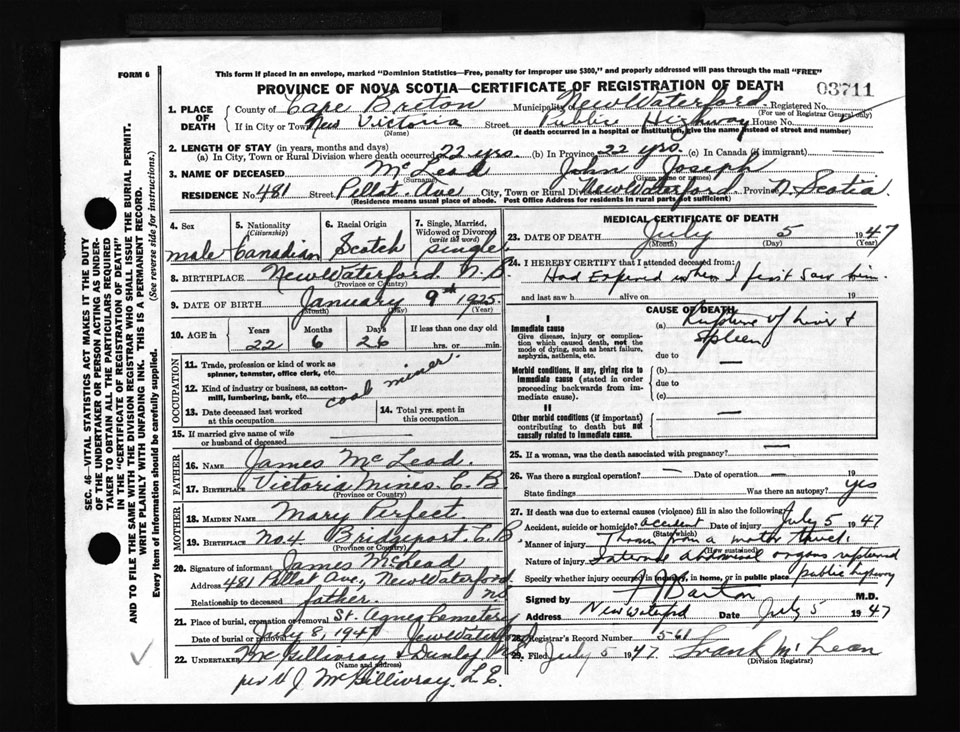 FORM 6
This form if placed in an envelope, marked "Dominion Statistics—Free, penalty for improper use $300," and properly addressed will pass through the mail "FREE"
PROVINCE OF NOVA SCOTIA—CERTIFICATE OF REGISTRATION OF DEATH
03711
1. PLACE OF DEATH
County of Cape Breton Municipality of New Waterford Registered No.
(For use of Registrar General only)
If in City or Town New Victoria Street Public Highway House No.
(Name) (If death occurred in a hospital or institution, give the name instead of street and number)
2. LENGTH OF STAY (in years, months and days)
(a) In City, Town or Rural Division where death occurred 22 yrs. (b) In Province 22 yrs. (c) In Canada (if immigrant)
3. NAME OF DECEASED Mc Lead John Joseph
(Surname) (Given name or names)
RESIDENCE No. 481 Street Pellat Ave City, Town or Rural Division New Waterford Province N. Scotia
(Residence means usual place of abode. Post Office Address for residents in rural parts not sufficient)
4. Sex
male
5. Nationality (Citizenship)
Canadian
6. Racial Origin
Scotch
7. Single, Married, Widowed or Divorced (write the word)
single
8. BIRTHPLACE New Waterford
(Province or Country)
9. DATE OF BIRTH January 9th 1925
(Month) (Day) (Year)
10. AGE in
Years Months Days If less than one day old
22 6 26 hrs. or min.
OCCUPATION
11. Trade, profession or kind of work as spinner, teamster, office clerk, etc.
coal miner.
12. Kind of industry or business, as cotton-mill, lumbering, bank, etc.
13. Date deceased last worked at this occupation
14. Total yrs. spent in this occupation
15. If married give name of wife or husband of deceased
FATHER
16. NAME James Mc Lead.
17. BIRTHPLACE Victoria Mines. C.B.
(Province or Country)
MOTHER
18. MAIDEN NAME Mary Perfect
19. BIRTHPLACE No. 4 Bridgeport. C.B
(Province or Country)
20. Signature of informant James McLead
Address 481 Pellat Ave, New Waterford
NS
Relationship to deceased father.
21. Place of burial, cremation or removal St. Agnes Cemetery
Date of burial or removal July 8, 1947 New Waterford
22. UNDERTAKER McGillivray & Dunlop
(Name and address)
per J McGillivray. L.E.
MEDICAL CERTIFICATE OF DEATH
23. DATE OF DEATH July 5 1947
(Month) (Day) (Year)
24. I HEREBY CERTIFY that I attended deceased from:
Had Expired when I first saw him
and last saw h alive on 19
CAUSE OF DEATH
I
Immediate cause
Give disease, injury or complication which caused death, not the mode of dying, such as heart failure, asphyxia, asthenia, etc.
(a) Rupture of liver & Spleen
due to
Morbid conditions, if any, giving rise to immediate cause (stated in order proceeding backwards from immediate cause)
(b)
due to
(c)
II
Other morbid conditions (if important) contributing to death but not causally related to immediate cause.
25. If a woman, was the death associated with pregnancy?
26. Was there a surgical operation? — Date of operation — 19
State findings Was there an autopsy? yes
27. If death was due to external causes (violence) fill in also the following:
Accident, suicide or homicide? accident Date of injury July 5 1947
(State which)
Manner of injury Thrown from a motor
(How sustained)
Nature of injury Internal abdominal organs ruptured
Specify whether injury occurred in industry, in home, or in public place public highway
Signed by Barton M.D.
Address New Waterford Date July 5 1947
28. Registrar's Record Number 561
29. Filed July 5 1947 Frank McLean
(Division Registrar)
SEC. 46—VITAL STATISTICS ACT MAKES IT THE DUTY
OF THE UNDERTAKER OR PERSON ACTING AS UNDER-
TAKER TO OBTAIN ALL THE PARTICULARS REQUIRED
IN THE "CERTIFICATE OF REGISTRATION OF DEATH"
AND TO FILE THE SAME WITH THE DIVISION REGISTRAR WHO SHALL ISSUE THE BURIAL PERMIT.
WRITE PLAINLY WITH UNFADING INK. THIS IS A PERMANENT RECORD.
Every item of Information should be carefully supplied. (See reverse side for instructions.)